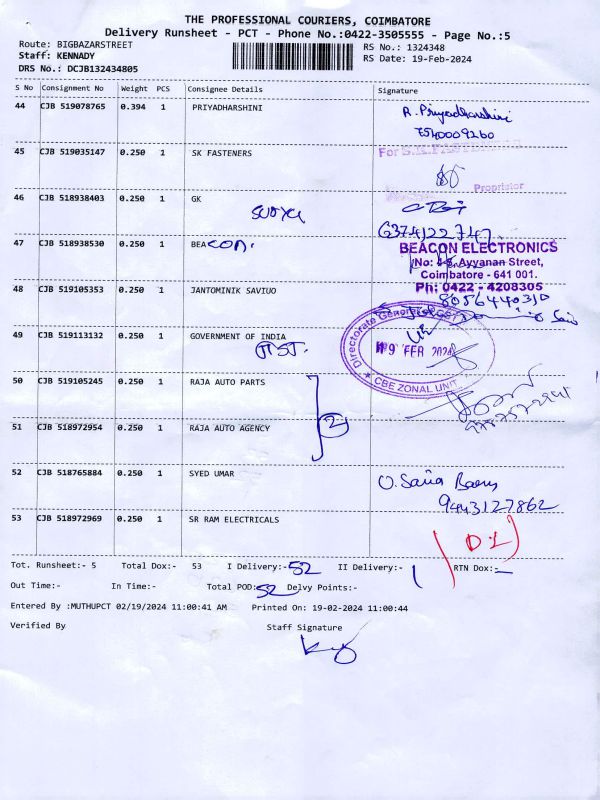 THE PROFESSIONAL COURIERS, COIMBATORE
Delivery Runsheet - PCT - Phone No.:0422-3505555 - Page No.:5
Route: BIGBAZARSTREET
Staff: KENNADY
DRS No.: DCJB132434805
RS No.: 1324348
RS Date: 19-Feb-2024
S No Consignment No Weight PCS Consignee Details Signature
44 CJB 519078765 0.394 1 PRIYADHARSHINI R. Priyadharshini
7540009260
45 CJB 519035147 0.250 1 SK FASTENERS For S.K.FASTENERS
Proprietor
46 CJB 518938403 0.250 1 GK
Surya
6374122747
47 CJB 518938530 0.250 1 BEACON.
BEACON ELECTRONICS
No: Ayyanan Street,
Coimbatore - 641 001.
Ph: 0422 - 4208305
48 CJB 519105353 0.250 1 JANTOMINIK SAVIUO
8056440310
49 CJB 519113132 0.250 1 GOVERNMENT OF INDIA
GST.
Directorate General of GST
19 FEB 2024
★ CBE ZONAL UNIT ★
50 CJB 519105245 0.250 1 RAJA AUTO PARTS
2
51 CJB 518972954 0.250 1 RAJA AUTO AGENCY
52 CJB 518765884 0.250 1 SYED UMAR
9443127862
53 CJB 518972969 0.250 1 SR RAM ELECTRICALS
D.L
Tot. Runsheet:- 5 Total Dox:- 53 I Delivery:-52 II Delivery:- 1 RTN Dox:-
Out Time:- In Time:- Total POD:52 Delvy Points:-
Entered By :MUTHUPCT 02/19/2024 11:00:41 AM Printed On: 19-02-2024 11:00:44
Verified By Staff Signature